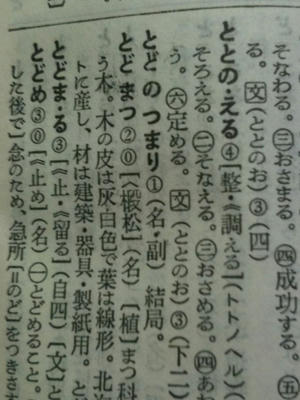 そなわる。㊂おさまる。㊃成功する。㊄
る。文(ととのお)③(四)
ととの・える④[整・調える](トトノヘル)(
そろえる。㊁そなえる。㊂おさめる。㊃あわ
う。㊅定める。文(ととのお)③(下二)
とどのつまり①(名・副)結局。
とどまつ②⓪[《椴松](名)[植]まつ科
う木。木の皮は灰白色で葉は線形。北海
トに産し、材は建築・器具・製紙用。と
とどま・る③[《止・《留る](自四)[文]と
とどめ③⓪[《止め](名)㊀とどめること。
した後で]念のため、急所[=のど]をつきさ